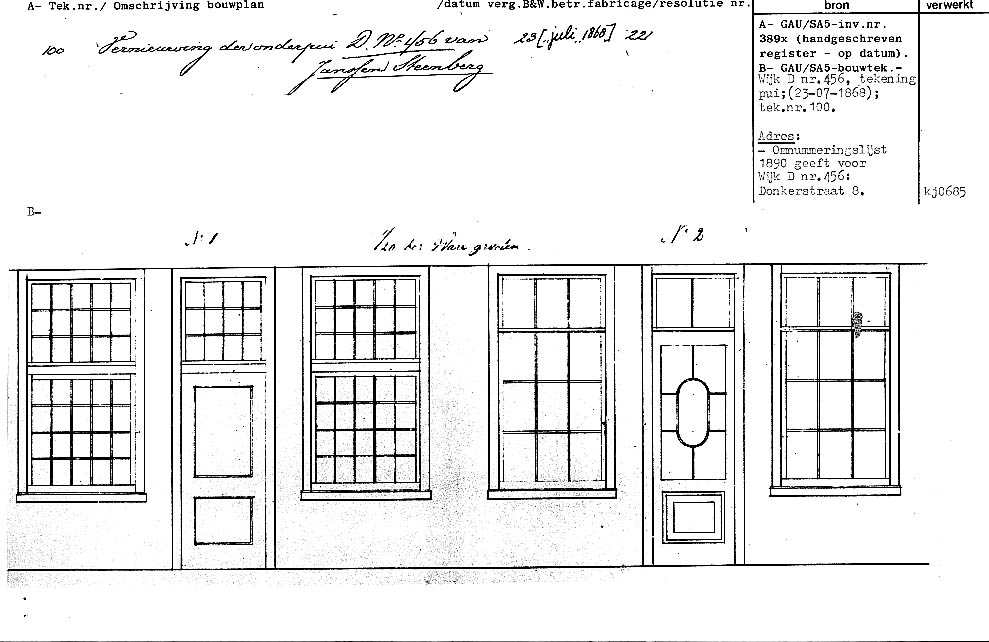 A- Tek.nr./ Omschrijving bouwplan /datum verg.B&W.betr.fabricage/resolutie nr.
bron
verwerkt
100 Vernieuwing der onderpui D. No 456 van 23 [juli 1868] 221
Janssen Steenberg
A- GAU/SA5-inv.nr.
389x (handgeschreven
register - op datum).
B- GAU/SA5-bouwtek.-
Wijk D nr.456, tekening
pui;(23-07-1868);
tek.nr.100.
Adres:
- Omnummeringslijst
1890 geeft voor
Wijk D nr.456:
Donkerstraat 8.
kj0685
B-
No 1
No 2